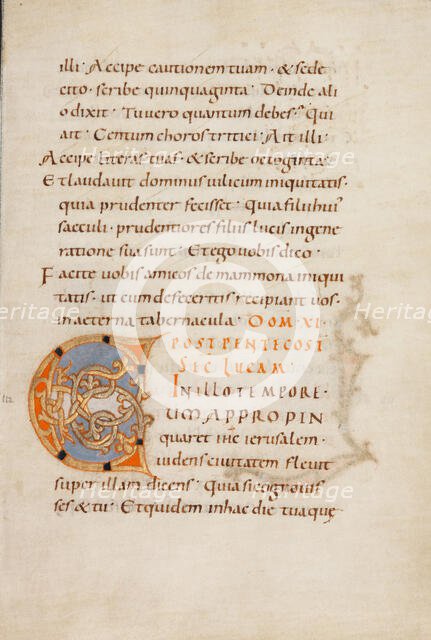 illi · Accipe cautionem tuam · & sede
cito · scribe quinquaginta · Deinde ali
o dixit · Tu vero quantum debes? Qui
ait · Centum choros tritici · Ait illi ·
Accipe litteras tuas · & scribe octoginta ·
Et laudavit dominus vilicum iniquitatis ·
quia prudenter fecisset · Quia filii hui'
saeculi · prudentiores filiis lucis in gene
ratione sua sunt · Et ego vobis dico ·
Facite vobis amicos de mammona iniqui
tatis · ut cum defeceritis recipiant vos ·
in aeterna tabernacula · DOM XI
POST PENTECOST
SEC LUCAM
IN ILLO TEMPORE ·
CUM APPROPIN
quaret ihc ierusalem ·
videns civitatem flevit
super illam dicens · Quia si cognovis
ses & tu · Et quidem in hac die tua quę
112
Heritage
Heritage
Heritage
Heritage
Heritage
Heritage